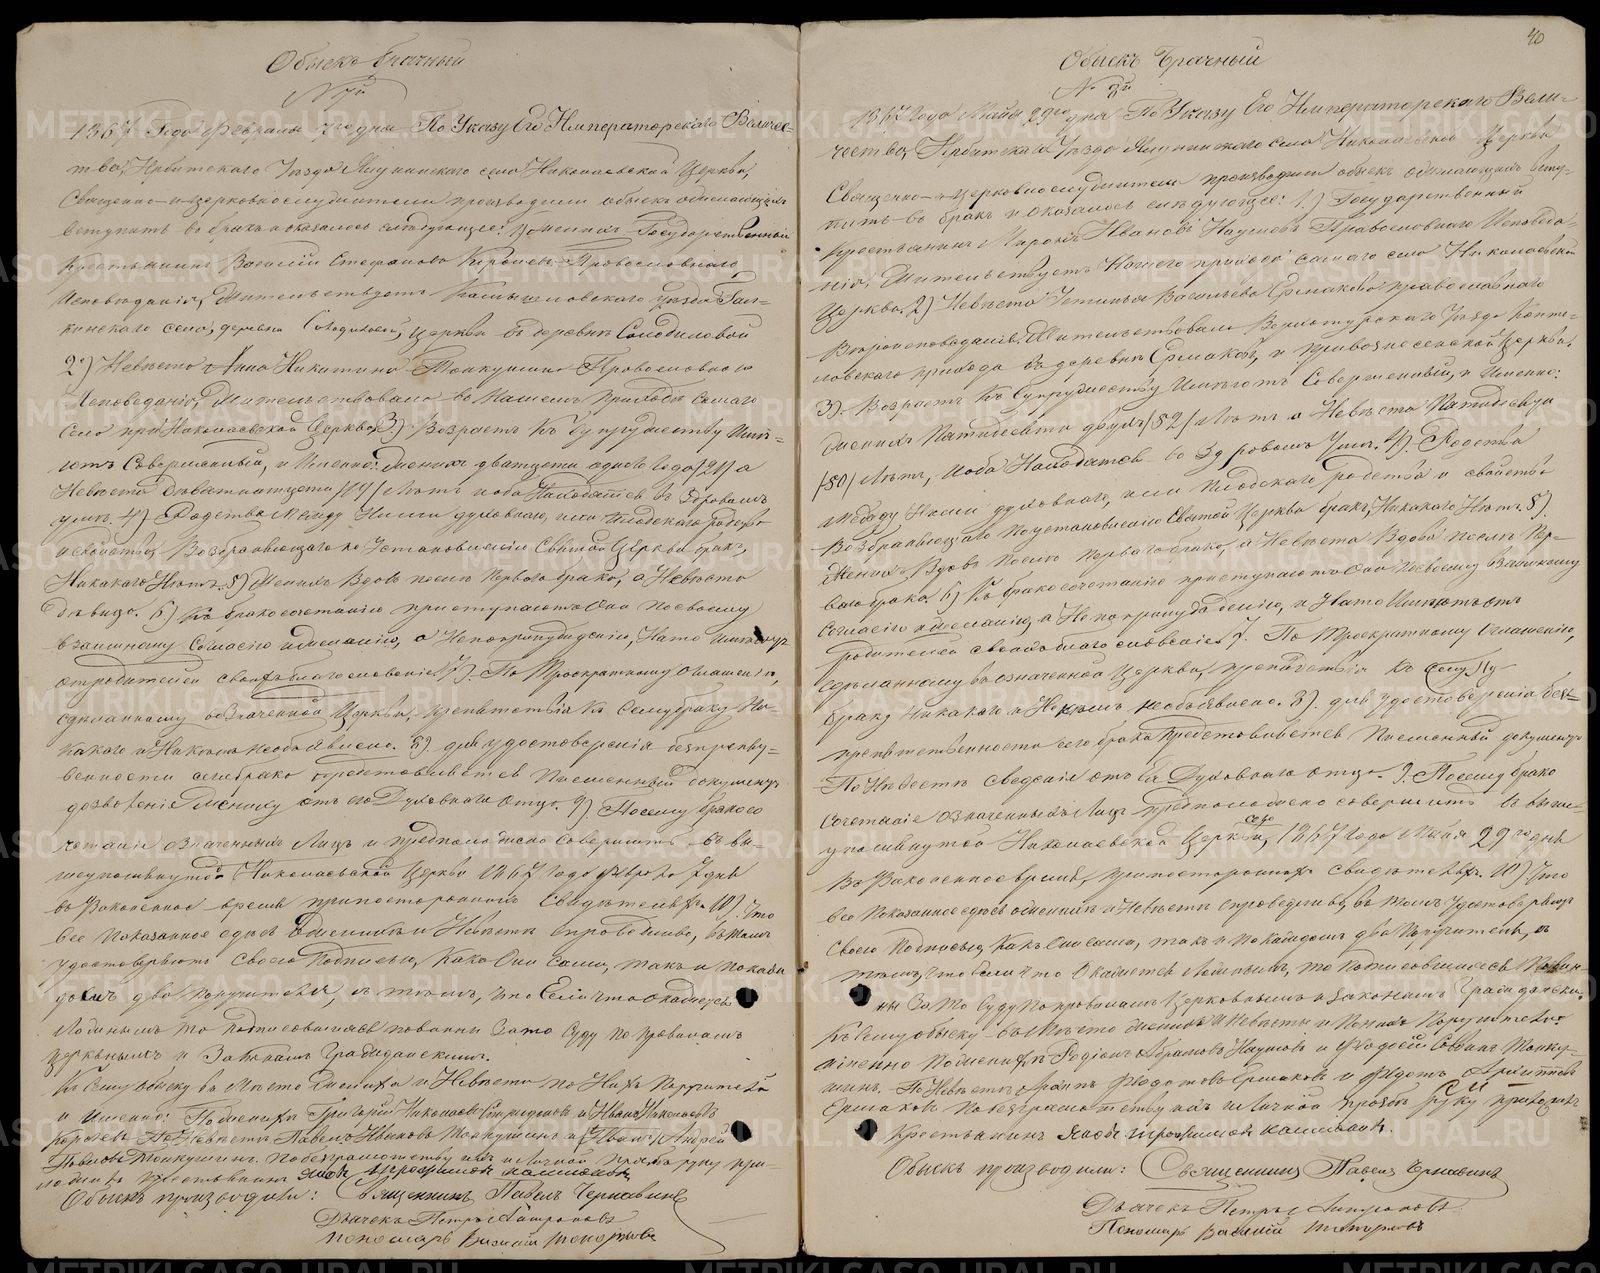 Обыскъ Брачный
№ 7й
1867 Года Февраля 7го дня По Указу Его Императорскаго Величес-
тва, Ирбитскаго Уезда села Николаевской Церкви,
Священно-и-церковнослужители производили обыскъ о желающихъ
вступить въ бракъ и оказалось следующее: 1) Женихъ Государственный
Крестьянинъ Василий Стефановъ Православнаго
Исповеданiя, Жительствуетъ Камышловскаго уезда
села, деревни церкви въ деревне
2е) Невеста Анна Никитина Православнаго
Исповеданiя, Жительствовала въ Нашемъ приходе самаго
села при Николаевской Церкви 3) Возрастъ Къ супружеству Име-
ютъ Совершенный, и Именно: Женихъ дватцети одного Года /21/ а
Невеста Деватнатцети /19/ Летъ и оба Находятся въ здравомъ
уме. 4) Родства Между Ними духовнаго, или Плотскаго родства
и свойства Возбраняющаго по Установленiю Святой Церкви бракъ,
Никакого Нетъ. 5) Женихъ Вдовъ после Перваго брака, а Невеста
Девица. 6) Къ бракосочетанiю приступаютъ Они По своему
взаимному Согласiю и желанiю, а Не по принужденiю, На то имеютъ
отъ родителей своихъ благословенiе 7) По Троекратному оглашенiю,
сделанному въ означенной Церкви, препятствiя Къ Сему браку Ни-
какого и Никемъ не объявлено. 8) для удостоверенiя безпрепят-
венности сего брака представляется Писменный документъ
дозволенiе Женику отъ его Духовнаго отца. 9) Посему бракосо
четанiе означенныхъ Лицъ и предположено совершить въ вы-
шеупомянутой Николаевской Церкви 1867 Года Февраля 7 дня
въ Законенное время при постороннихъ свидетеляхъ. 10) Что
все показанное здесь о Женике и Невесте справедливо, въ томъ
удостоверяютъ своею Подписью, Какъ Они Сами, такъ и по каж
домъ два поручителя, съ темъ, что Если что окажется
Ложнымъ то подписавшiяся повинны За то Суду по правиламъ
церковнымъ и Законамъ Гражданскимъ.
Къ Сему обыску въ Место Жениха и Невесты по Нихъ Поручители
и Именно: По Женихе Григорий Николаевъ и Иванъ Николаевъ
По Невесте Павелъ Ивановъ и Андрей
Павловъ По безграмотству ихъ и личной просьбе руку при-
ложилъ крестьянинъ Яковъ Трофимовъ
Обыскъ производили: Священникъ Павелъ Чернавинъ
Дьячекъ Петръ
Пономарь Василий
40
Обыскъ Брачный
№ 8й
1867 Года Майя 29го дня По Указу Его Императорскаго Вели-
чества, Ирбитскаго Уезда села Николаевской Церкви
Священно-и-церковнослужители производили обыскъ о желающихъ всту-
пить въ бракъ и оказалось следующее: 1) Государственный
Крестьянинъ Миронъ Ивановъ Наумовъ Православнаго Исповеда-
нiя, Жительствуетъ Нашего прихода самаго села Николаевской
Церкви. 2) Невеста Устинья Васильева Ермакова православнаго
Вероисповеданiя. Жительствовала Верхотурскаго Уезда Копте-
ловскаго прихода въ деревне Ермаковой, и при Вознесенской Церкви.
3) Возрастъ Къ Супружеству Имеютъ Совершенный, и Именно:
Женихъ Патидесяти двухъ /52/ Летъ а Невеста Патидесяти
/50/ Летъ, и оба Находятся во здравомъ Уме. 4) Родства
Между Ними духовнаго, или Плотскаго родства и свойства
Возбраняющаго По установленiю Святой Церкви бракъ, Никакого Нетъ. 5)
Женихъ Вдовъ После Перваго брака, а Невеста Вдова после Пер-
ваго брака. 6) Къ бракосочетанiю приступаютъ Они По своему Взаимному
Согласiю и желанiю, а Не по принужденiю, и На то Имеютъ отъ
родителей своихъ благословенiе 7. По Троекратному Оглашенiю,
сделанному въ означенной Церкви, препятствiя Къ Сему
браку Никакого и Никемъ не объявлено. 8). для удостоверенiя без-
препятственности сего брака Представляется Писменный документъ
По Невесте сведенiе отъ Ея Духовнаго отца. 9. Посему брако
сочетанiе означенныхъ Лицъ предположено совершить въ выше-
упомянутой Николаевской Церкви, сего 1867 Года Майя 29го дня
Въ Законенное время, при постороннихъ свидетеляхъ. 10) Что
все Показанное здесь о Женике и Невесте справедливо, въ томъ удостоверяютъ
Своею Подписью, Какъ Они сами, такъ и по каждомъ два Поручителя, съ
темъ, что Если что Окажется Ложнымъ, то Подписавшiяся Повин-
ны За то Суду По правиламъ Церковнымъ и Законамъ Гражданским.
Къ Сему обыску въ Место Жениха и Невесты и По нихъ Поручители
Именно По Женихе Родiонъ Абрамовъ Наумовъ и
По Невесте Федотовъ Ермаковъ и Федотъ
Ермаковъ По безграмотству ихъ и Личной прозбе руку приложилъ
Крестьянинъ Яковъ Трофимовъ
Обыскъ производили: Священникъ Павелъ Чернавинъ
Дьячекъ Петръ
Пономарь Василий